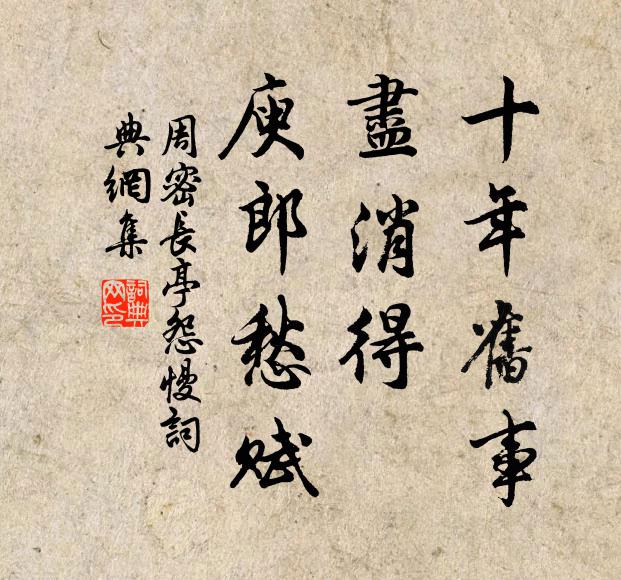 十年舊事
盡消得
庾郎愁賦
周密長亭怨慢詞
典網集
詞典網印